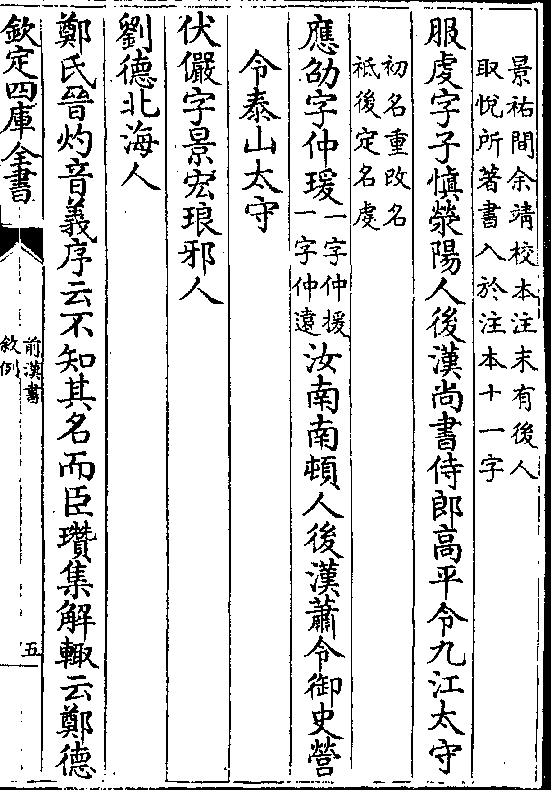 景祐間余靖校本注末有後人
取悅所著書入於注本十一字
服虔字子慎滎陽人後漢尚書侍郎高平令九江太守
初名重改名
祇後定名虔
應劭字仲瑗一字仲援一字仲遠汝南南頓人後漢蕭令御史營
令泰山太守
伏儼字景宏琅邪人
劉德北海人
鄭氏晉灼音義序云不知其名而臣瓚集解輙云鄭德
欽定四庫全書
前漢書
敘例
五